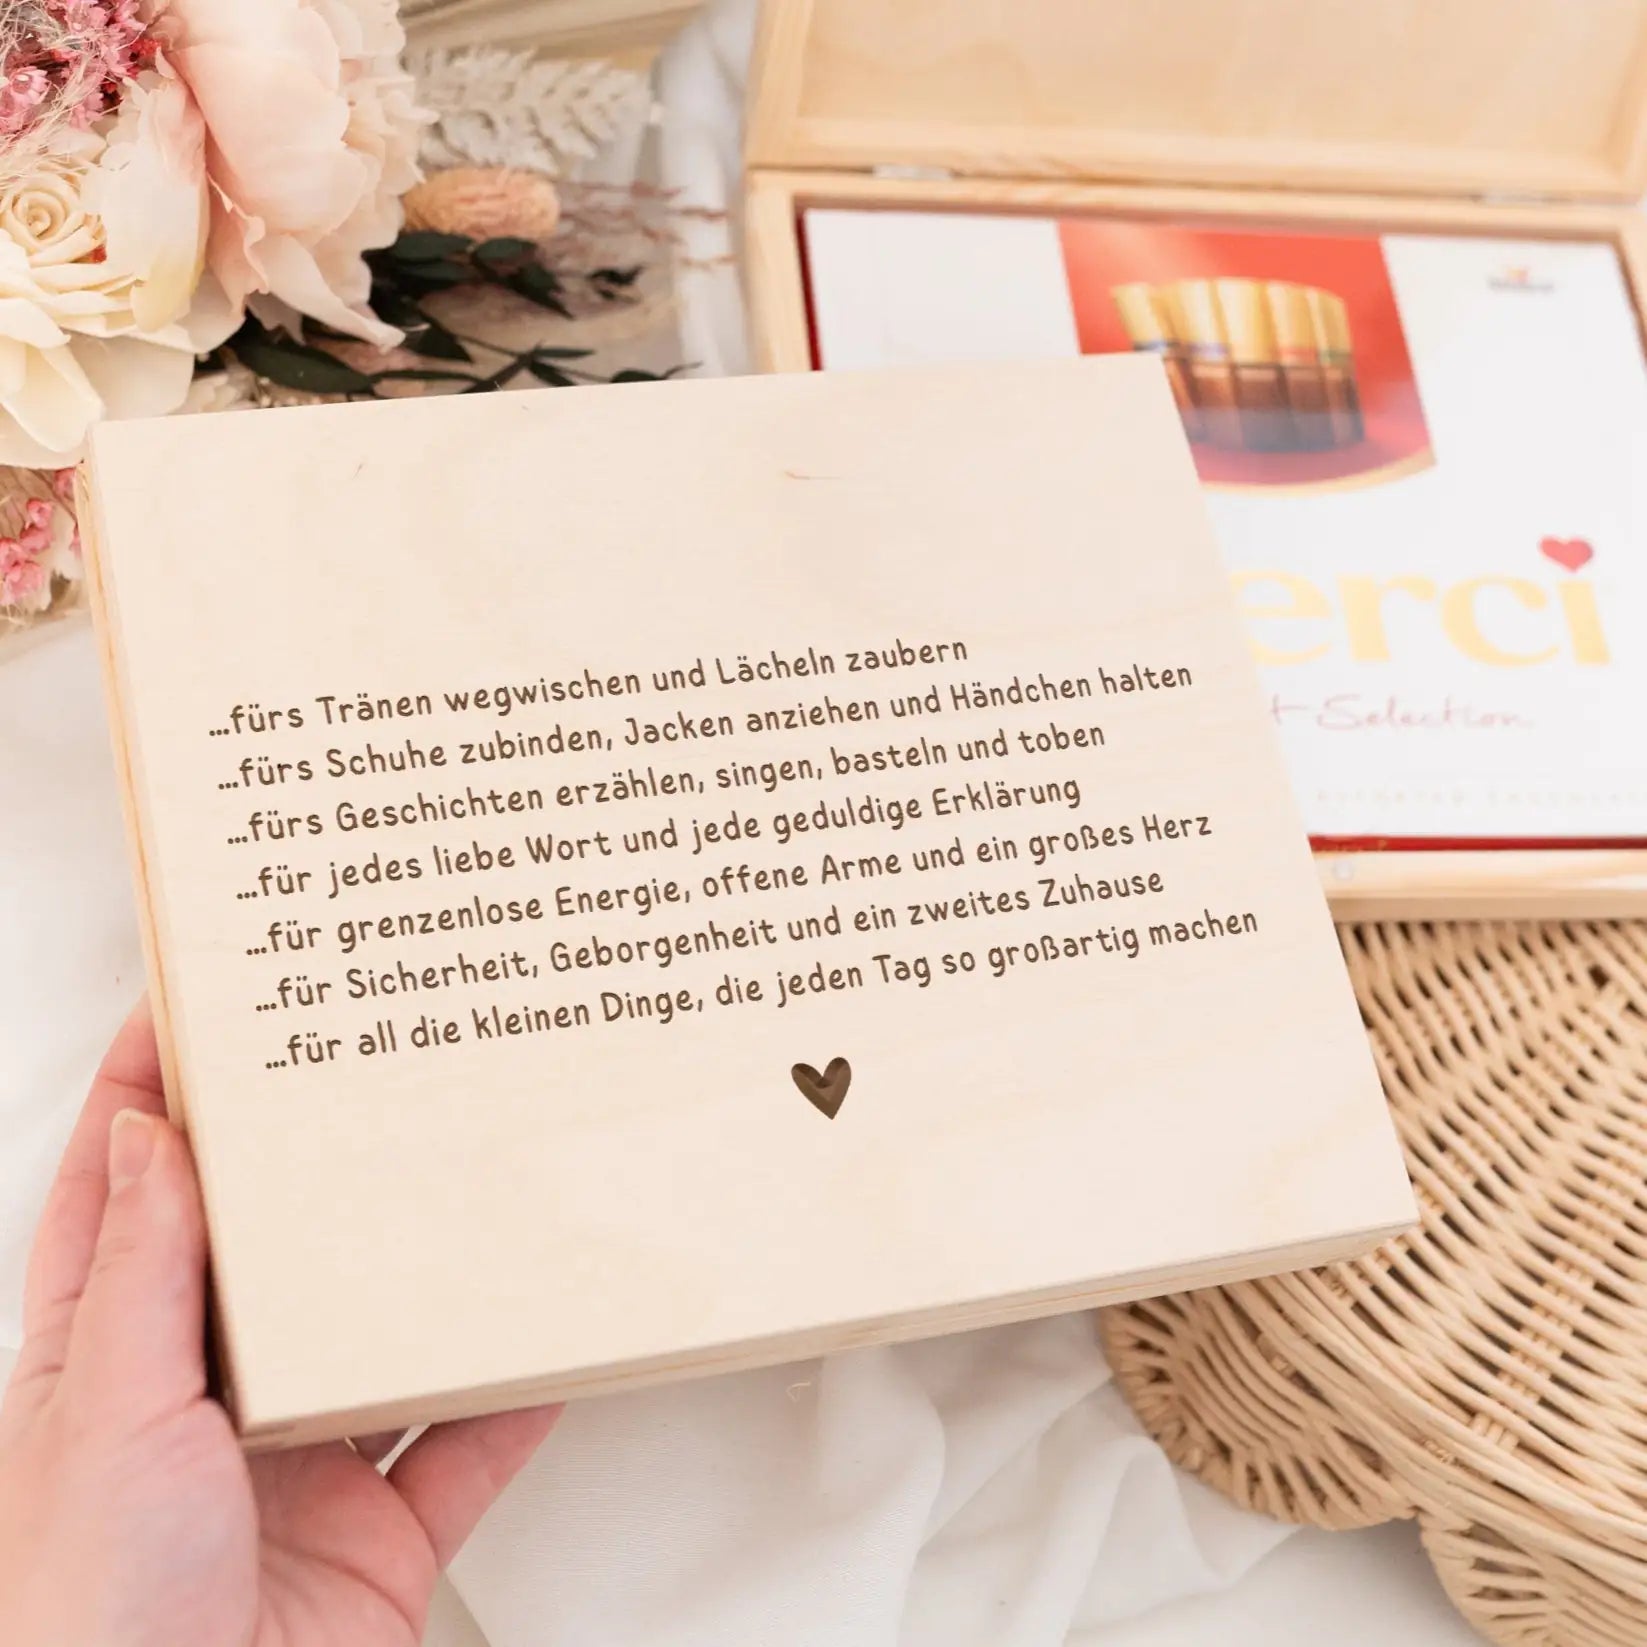 ...fürs Tränen wegwischen und Lächeln zaubern
...fürs Schuhe zubinden, Jacken anziehen und Händchen halten
...fürs Geschichten erzählen, singen, basteln und toben
...für jedes liebe Wort und jede geduldige Erklärung
...für grenzenlose Energie, offene Arme und ein großes Herz
...für Sicherheit, Geborgenheit und ein zweites Zuhause
...für all die kleinen Dinge, die jeden Tag so großartig machen
erci
Selection